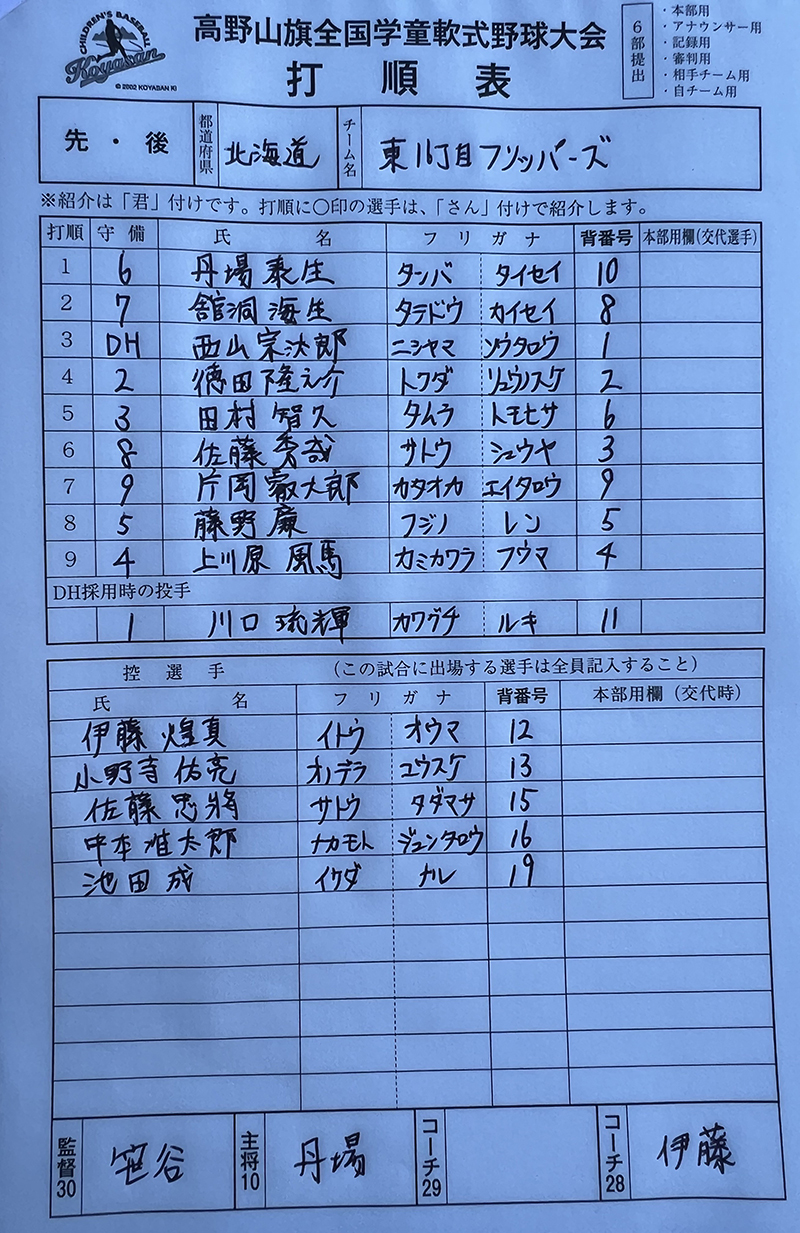 CHILDREN'S BASEBALL
Koyasan
© 2002 KOYASAN KI
高野山旗全国学童軟式野球大会
打順表
6部提出
・本部用
・アナウンサー用
・記録用
・審判用
・相手チーム用
・自チーム用
先・後 都道府県 北海道 チーム名 東16丁目フリッパーズ
※紹介は「君」付けです。打順に〇印の選手は、「さん」付けで紹介します。
打順 守備 氏名 フリガナ 背番号 本部用欄(交代選手)
1 6 丹場泰生 タンバ タイセイ 10
2 7 舘洞海生 タテドウ カイセイ 8
3 DH 西山宗汰郎 ニシヤマ ソウタロウ 1
4 2 德田隆之介 トクダ リュウノスケ 2
5 3 田村智久 タムラ トモヒサ 6
6 8 佐藤秀哉 サトウ シュウヤ 3
7 9 片岡叡大郎 カタオカ エイタロウ 9
8 5 藤野廉 フジノ レン 5
9 4 上川原風馬 カミカワラ フウマ 4
DH採用時の投手
1 川口琉輝 カワグチ ルキ 11
控選手 (この試合に出場する選手は全員記入すること)
氏名 フリガナ 背番号 本部用欄(交代時)
伊藤煌真 イトウ オウマ 12
小野寺佑亮 オノデラ ユウスケ 13
佐藤忠將 サトウ タダマサ 15
中本准太郎 ナカモト ジュンタロウ 16
池田成 イケダ ナル 19
監督30 笹谷 主将10 丹場 コーチ29 コーチ28 伊藤